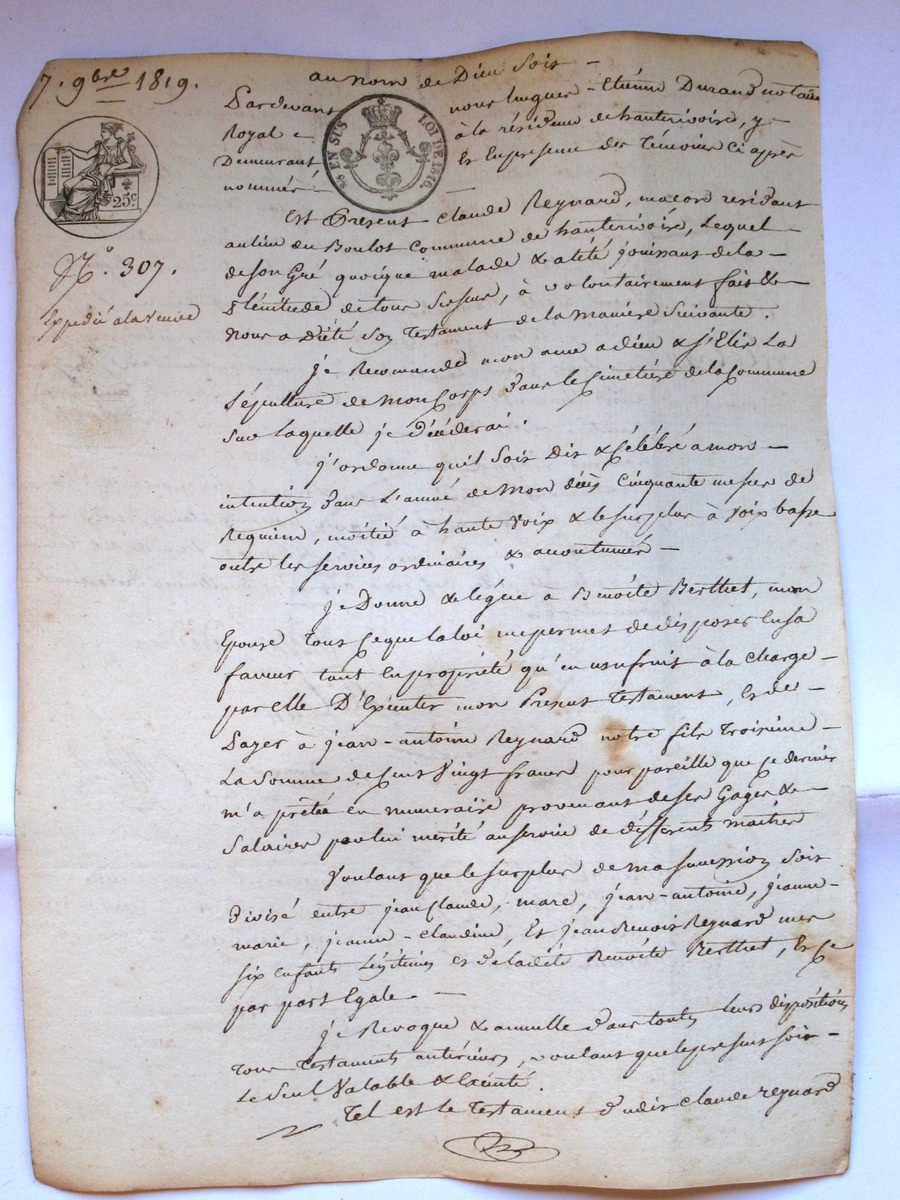 7. 9bre 1819.
au nom de Dieu soit —
Pardevant nous hugues-Etienne Durand notaire
Royal à la résidence de hauterivoire, y
Demeurant & En presence des Témoins Ci après
nommés —
EN SUS
LOI DE 1816.
25c
N.o 307.
Expedié a la veuve
Est Present Claude Reynard, macon residant
au lieu du Boulot Commune de hauterivoire, Lequel —
de son Gré quoique malade & alité jouissant de la —
Plénitude de tous Ses sens, à volontairement fait & —
nous a Dicté Son Testament de la maniere Suivante.
je Recommande mon ame a dieu & j'Elis La
Sépulture de Mon Corps dans le Cimetière de la Commune
Sur Laquelle je Décéderai.
j'ordonne qu'il Soit Dit & Célébré a mon —
intention dans L'année de Mon décès Cinquante messes de
Requiem, moitié à haute Voix & le surplus à Voix basse
outre les services ordinaires & acoutumés —
je Donne & légue à Benoite Berthet, mon
Epouse Tous Ce que la loi me permet de disposer En sa
faveur tant En propriété qu'en usufruit à la charge —
par Elle D'Executer mon Present Testament, Et de —
Payer à jean-antoine Reynard notre fils Troisième —
La Somme de Cent Vingt francs pour pareille que Ce dernier
m'a prêtée en numeraire provenant de ses Gages & —
Salaires par lui mérité au service de différents maitres
Voulant que le surplus de ma succession Soit
Divisé entre jean Claude, marc, jean-antoine, jeanne-
marie, jeanne-claudine, Et jean Benoit Reynard mes
Six Enfants Légitimes Et de ladite Benoite Berthet, Et Ce
par part Egale —
je Revoque & annulle dans toutes leurs dispositions
Tous Testaments antérieurs, voulant que le present Soit —
Le Seul Valable & Exécuté.
Tel est le Testament dudit Claude Reynard